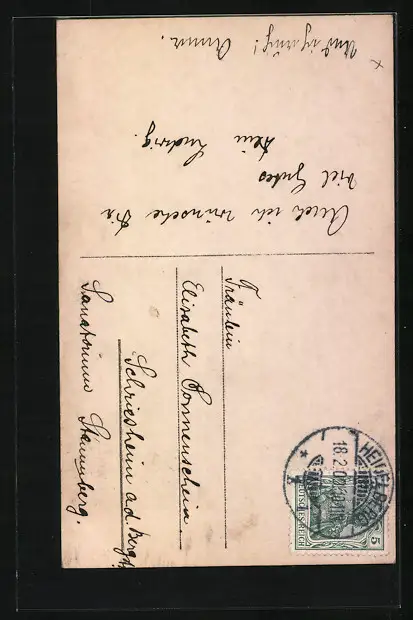 Und ich auch! Anna.
x
Auch ich wünsche Dir
viel Gutes
Dein Ludwig.
Fräulein
Elisabeth Sonnenschein
Schriesheim a.d. Bergstr.
Sanatorium Stammberg.
HEIDELBERG
18.2.
DEUTSCHES REICH
5